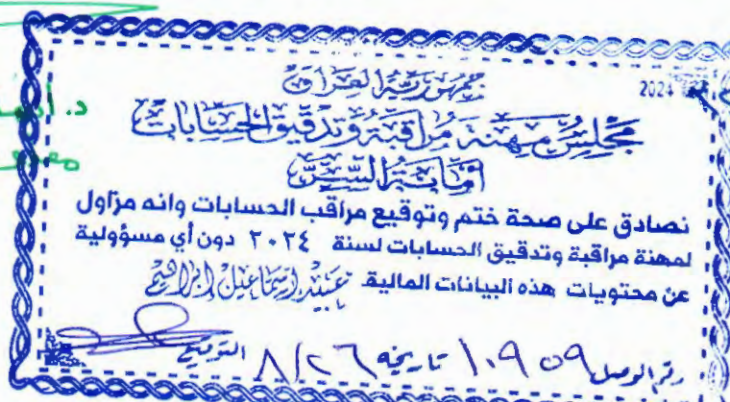 جمهورية العراق
2024
مجلس مهنة مراقبة وتدقيق الحسابات
د.
أمانة السر
نصادق على صحة ختم وتوقيع مراقب الحسابات وانه مزاول
لمهنة مراقبة وتدقيق الحسابات لسنة ٢٠٢٤ دون أي مسؤولية
عن محتويات هذه البيانات المالية عبيد إسماعيل إبراهيم
رقم الوصل ١٠٩٥٩ تاريخه ٨/٢٦ التوقيع